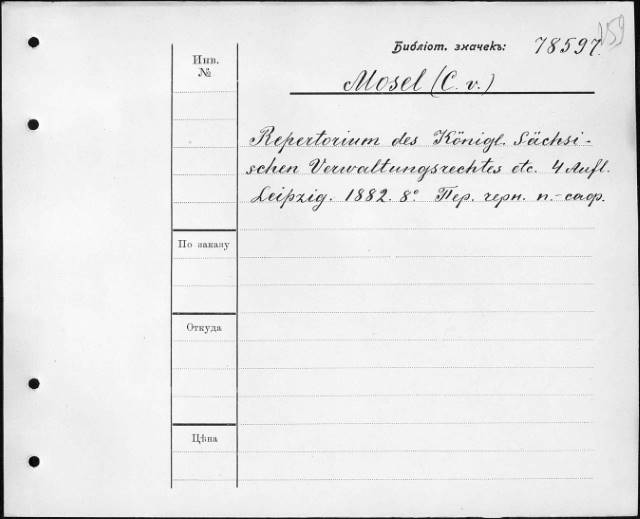 159
Библіот. значекъ: 78597.
Инв.
№
Mosel (C. v.)
Repertorium des Königl. Sächsi-
schen Verwaltungsrechtes etc. 4 Aufl.
Leipzig. 1882. 8° Пер. черн. п.-саф.
По заказу
Откуда
Цѣна